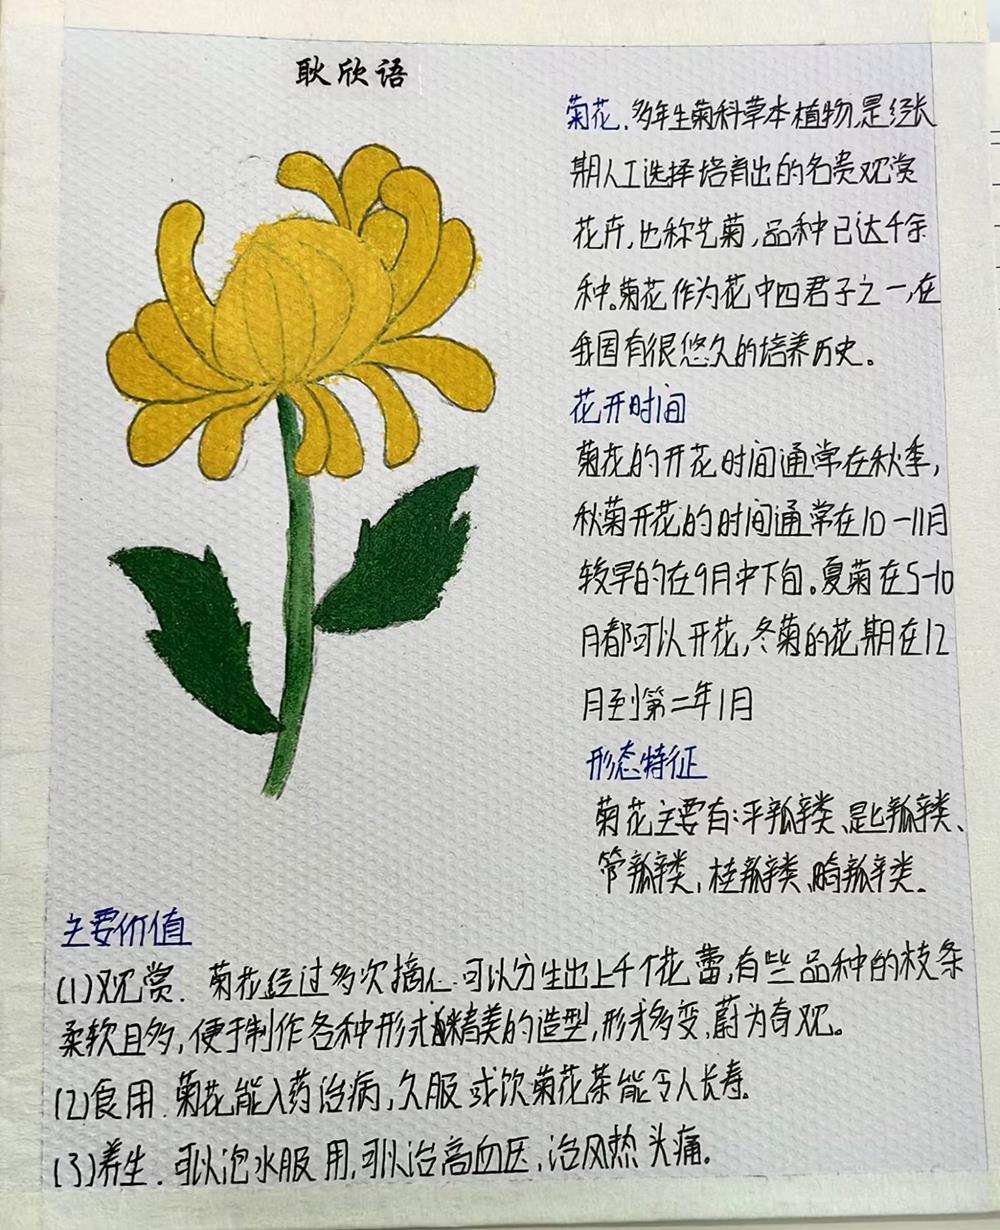 耿欣语
菊花,多年生菊科草本植物,是经长
期人工选择培育出的名贵观赏
花卉,也称艺菊,品种已达千余
种。菊花作为花中四君子之一,在
我国有很悠久的培养历史。
花开时间
菊花的开花时间通常在秋季,
秋菊开花的时间通常在10-11月
较早的在9月中下旬。夏菊在5-10
月都可以开花,冬菊的花期在12
月到第二年1月
形态特征
菊花主要有:平瓣类、匙瓣类、
管瓣类,桂瓣类、畸瓣类。
主要价值
(1)观赏. 菊花经过多次摘心.可以分生出上千个花蕾,有些品种的枝条
柔软且多,便于制作各种形式精美的造型,形式多变,蔚为奇观。
(2)食用.菊花能入药治病,久服或饮菊花茶能令人长寿。
(3)养生.可以泡水服用,可以治高血压,治风热头痛。